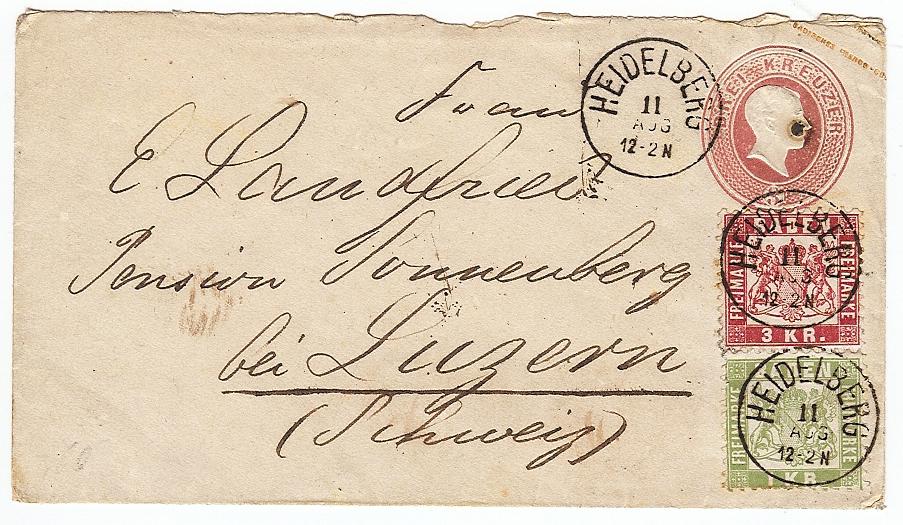 HEIDELBERG
11
AUG
12-2N
DREI KREUZER
Frau
E Landfried
Pension Sonnenberg
bei Luzern
(Schweiz)
HEIDELBERG
11
AUG
12-2N
FREIMARKE
FREIMARKE
3 KR.
HEIDELBERG
11
AUG
12-2N
FREIMARKE
1 KR.